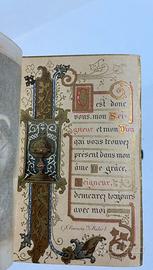 C'est donc
vous, mon Sei-
gneur et mon Dieu
qui vous trouvez
présent dans mon
âme! De grâce,
Seigneur,
demeurez toujours
avec moi